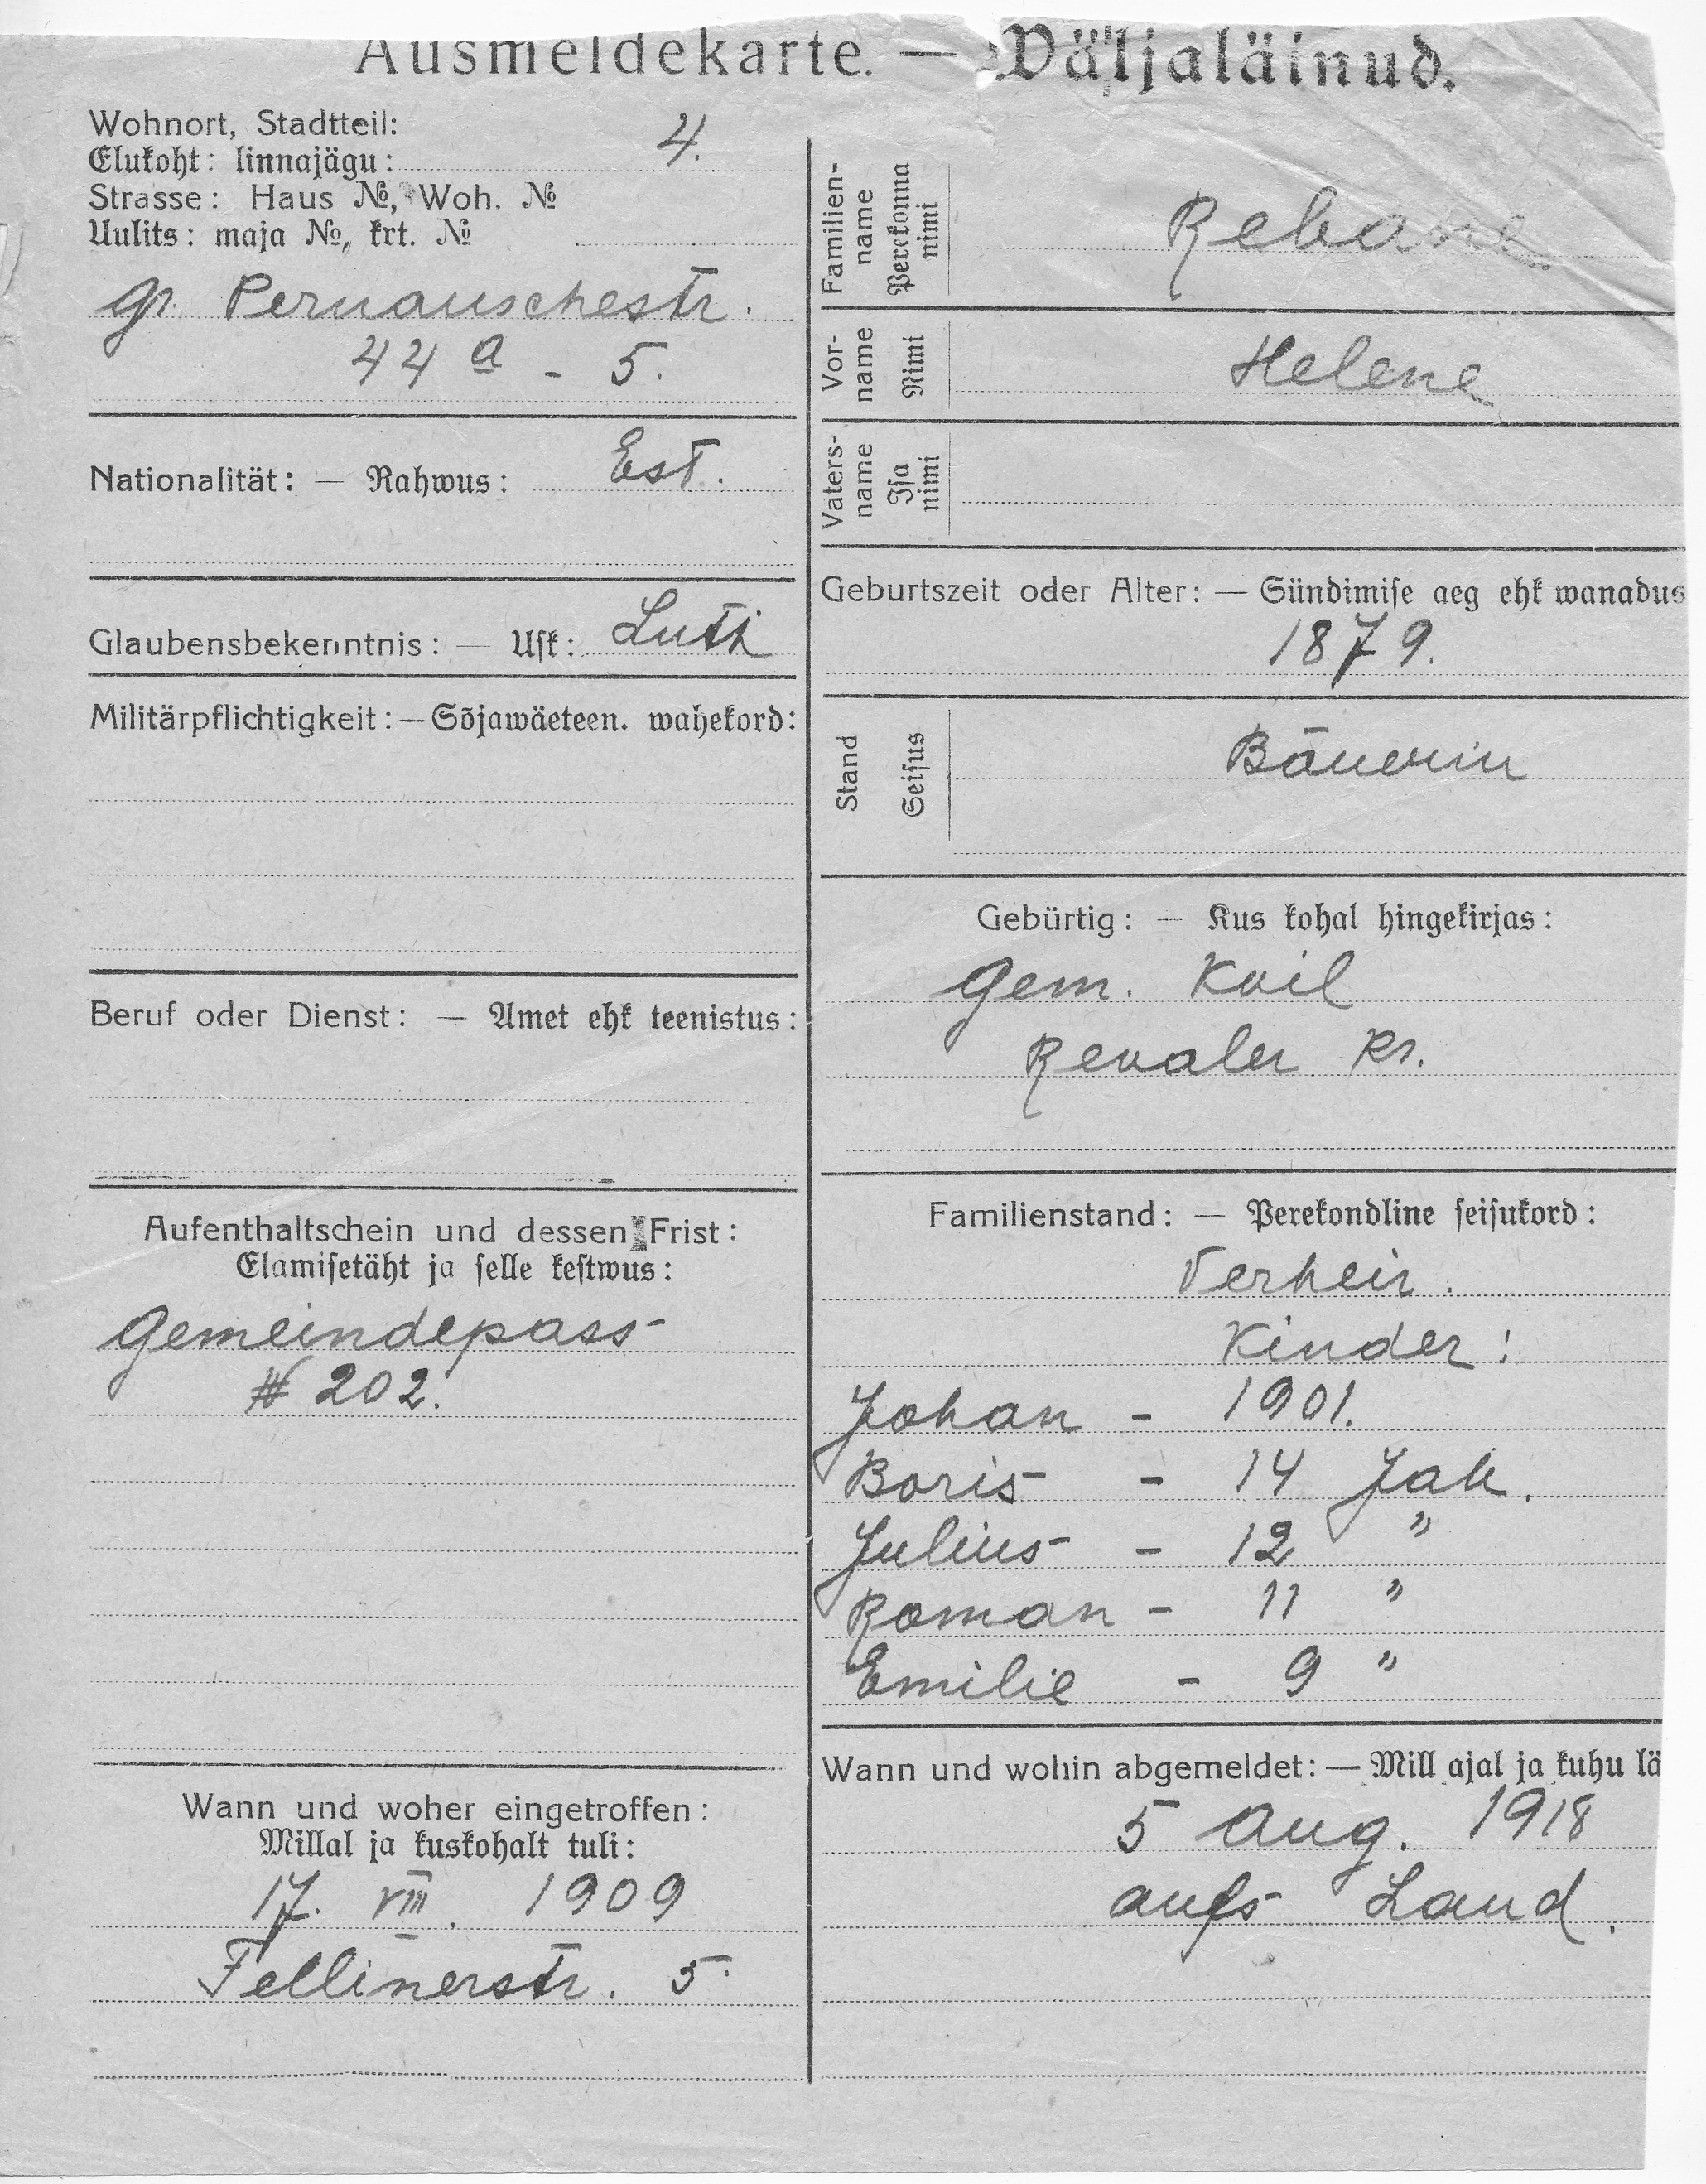 Ausmeldekarte. — Wäljaläinud.
Wohnort, Stadtteil:
Elukoht: linnajägu: 4.
Strasse: Haus №, Woh. №
Uulits: maja №, krt. №
gr. Pernauschestr.
44 a - 5.
Nationalität: — Rahwus: Est.
Glaubensbekenntnis: — Usk: Luth
Militärpflichtigkeit: — Sõjawäeteen. wahekord:
Beruf oder Dienst: — Amet ehk teenistus:
Aufenthaltschein und dessen Frist:
Elamisetäht ja selle kestwus:
Gemeindepass
# 202.
Wann und woher eingetroffen:
Millal ja kuskohalt tuli:
17. VIII. 1909
Fellinerstr. 5
Familien-
name
Perekonna
nimi
Rebane
Vor-
name
Nimi
Helene
Vaters-
name
Isa
nimi
Geburtszeit oder Alter: — Sündimise aeg ehk wanadus
1879.
Stand
Seisus
Bäuerin
Gebürtig: — Kus kohal hingekirjas:
Gem. Koil
Revaler Kr.
Familienstand: — Perekondline seisukord:
Verheir.
Kinder:
Johan - 1901.
Boris - 14 Jah.
Julius - 12 "
Roman - 11 "
Emilie - 9 "
Wann und wohin abgemeldet: — Mill ajal ja kuhu lä
5 Aug. 1918
aufs Land.